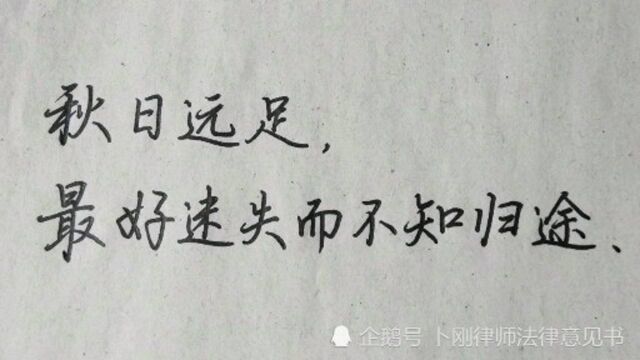 秋日远足，
最好迷失而不知归途、
企鹅号 卜刚律师法律意见书